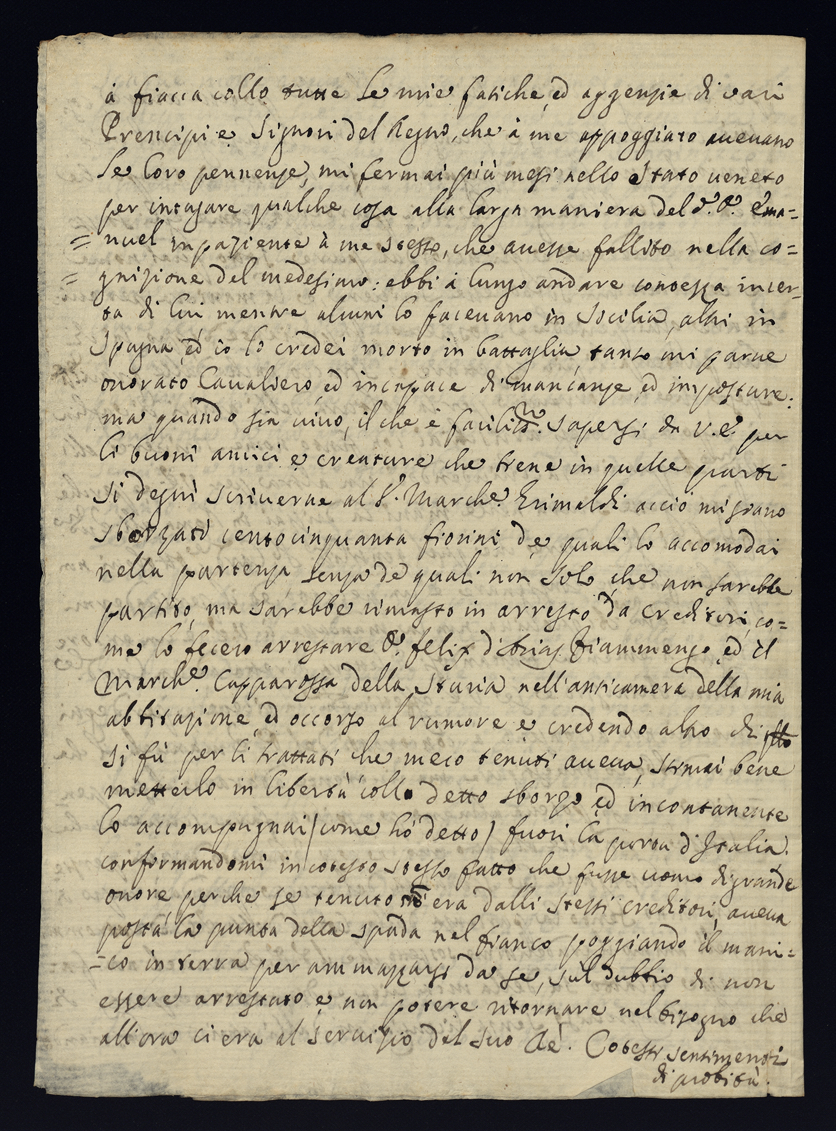 à fiacca collo tutte le mie fatiche, ed aggenzie di varii
Prencipi e Signori del Regno, che à me appoggiato avevano
le loro pennenze, mi fermai più mesi nello Stato veneto
per intagare qualche cosa alla larga maniera del d.º D. Ema=
=nuel inpaziente à me stesso, che avesse fallito nella co=
=gnizione del medesimo: ebbi à lungo andare contezza incer=
ta di lui mentre alcuni lo facevano in Socilia, altri in
Spagna ed io lo credei morto in battaglia tanto mi parve
onorato Cavaliero, ed incapace di mancanze, ed imposture:
ma quando sia vivo, il che è facilis.mo sapersi da V.E. per
li buoni amici e creature che tiene in quelle parti
si degni scriverne al S.r Marche. Grimaldi acciò mi siano
sborzati centocinquanta fiorini de quali lo accomodai
nella partenza senza de quali non solo che non sarebbe
partito, ma sarebbe rimasto in arresto da creditori, co=
me lo fecero arrestare D. Felix Fiammengo, ed il
Marche. Capparossa della Sturia nell'anticamera della mia
abbitazione, ed occorso al rumore e credendo altro di
si fù per li trattati che meco tenuti aveva, stimai bene
metterlo in libertà collo detto sborzo, ed incontanente
lo accompagnai (come hò detto) fuori la porta d'Italia.
conformandomi in cotesto stesso fatto che fusse uomo di grande
onore perche se tenuto nō era dalli stessi creditori, aveva
posta la punta della spada nel fianco poggiando il mani=
=co in terra per ammazzarsi da se, sul dubbio di non
essere arrestato e non potere ritornare nel bisogno che
all'ora ci era al servizio del suo Rè. Cotesti sentimenti
di probità.